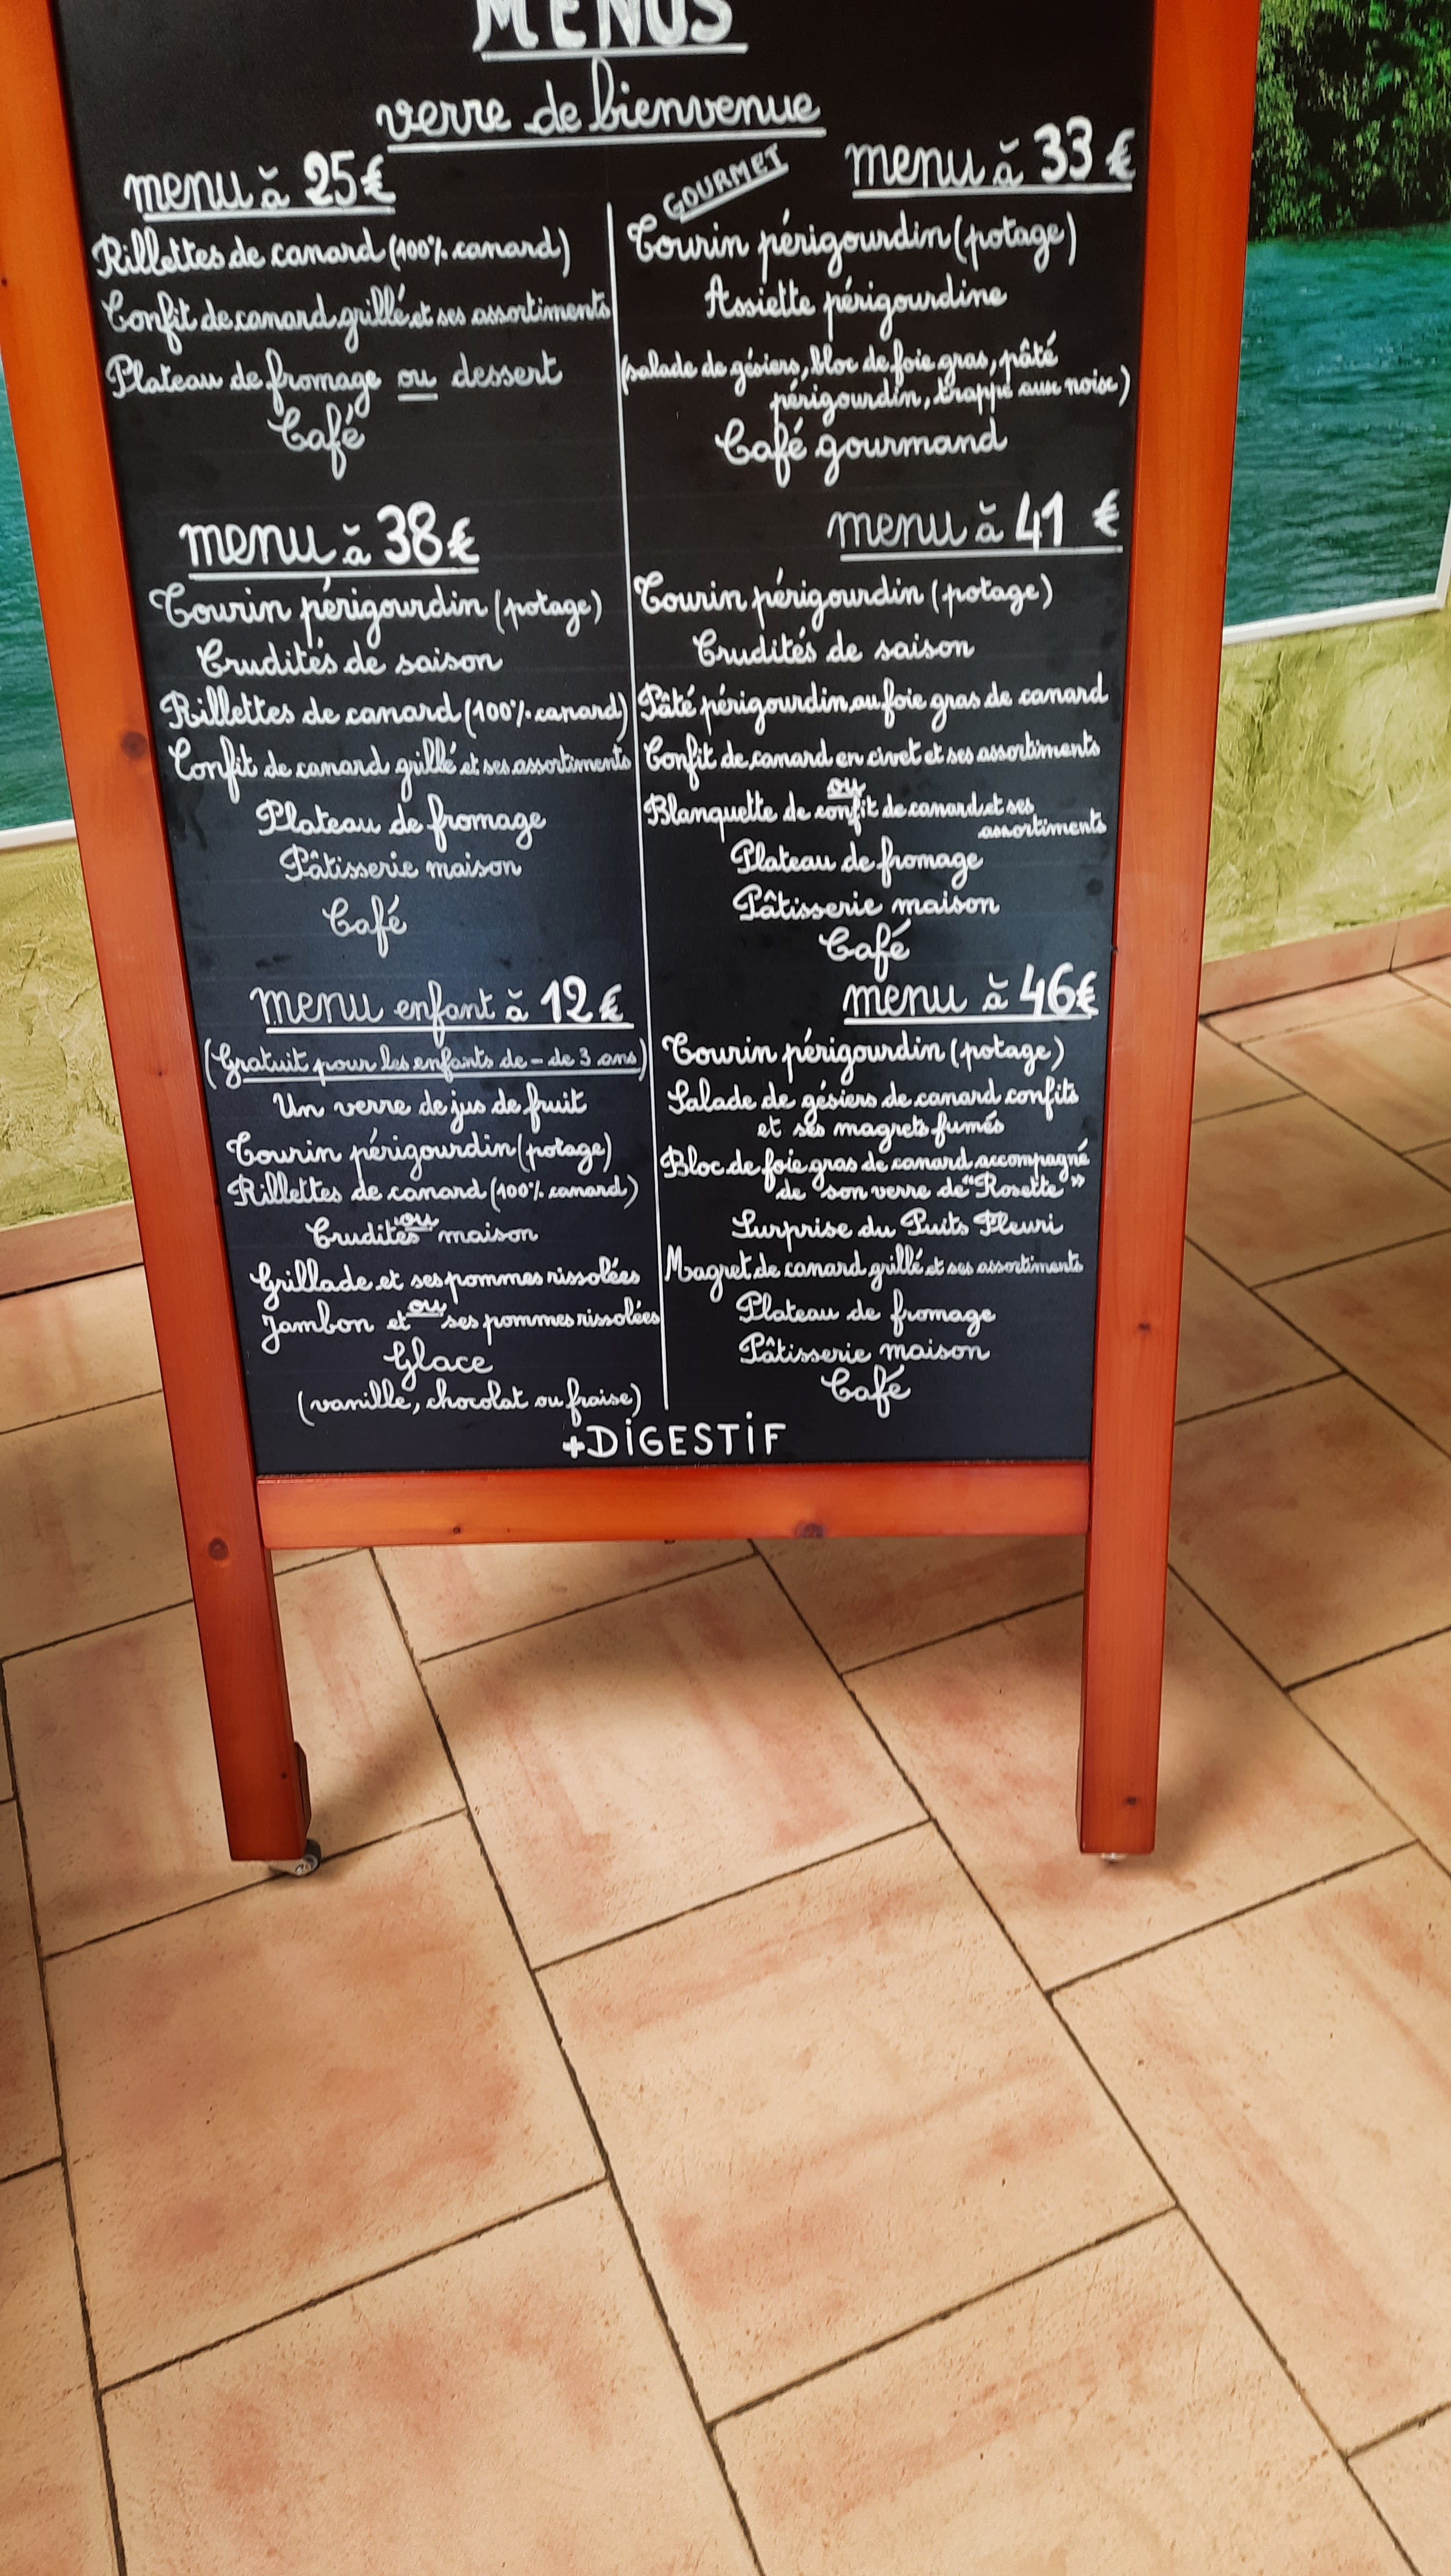 MENUS
verre de bienvenue
menu à 25€
Rillettes de canard (100% canard)
Confit de canard grillé et ses assortiments
Plateau de fromage ou dessert
Café
GOURMET
menu à 33€
Tourin périgourdin (potage)
Assiette périgourdine
(salade de gésiers, bloc de foie gras, pâté
périgourdin, trappe aux noise)
Café gourmand
menu à 38€
Tourin périgourdin (potage)
Crudités de saison
Rillettes de canard (100% canard)
Confit de canard grillé et ses assortiments
Plateau de fromage
Pâtisserie maison
Café
menu à 41 €
Tourin périgourdin (potage)
Crudités de saison
Pâté périgourdin au foie gras de canard
Confit de canard en civet et ses assortiments
ou
Blanquette de confit de canard et ses
assortiments
Plateau de fromage
Pâtisserie maison
Café
menu enfant à 12€
(Gratuit pour les enfants de - de 3 ans)
Un verre de jus de fruit
Tourin périgourdin (potage)
Rillettes de canard (100% canard)
ou
Crudités maison
Grillade et ses pommes rissolées
ou
Jambon et ses pommes rissolées
Glace
(vanille, chocolat ou fraise)
menu à 46€
Tourin périgourdin (potage)
Salade de gésiers de canard confits
et ses magrets fumés
Bloc de foie gras de canard accompagné
de son verre de "Rosette"
Surprise du Puits Fleuri
Magret de canard grillé et ses assortiments
Plateau de fromage
Pâtisserie maison
Café
+DiGESTiF